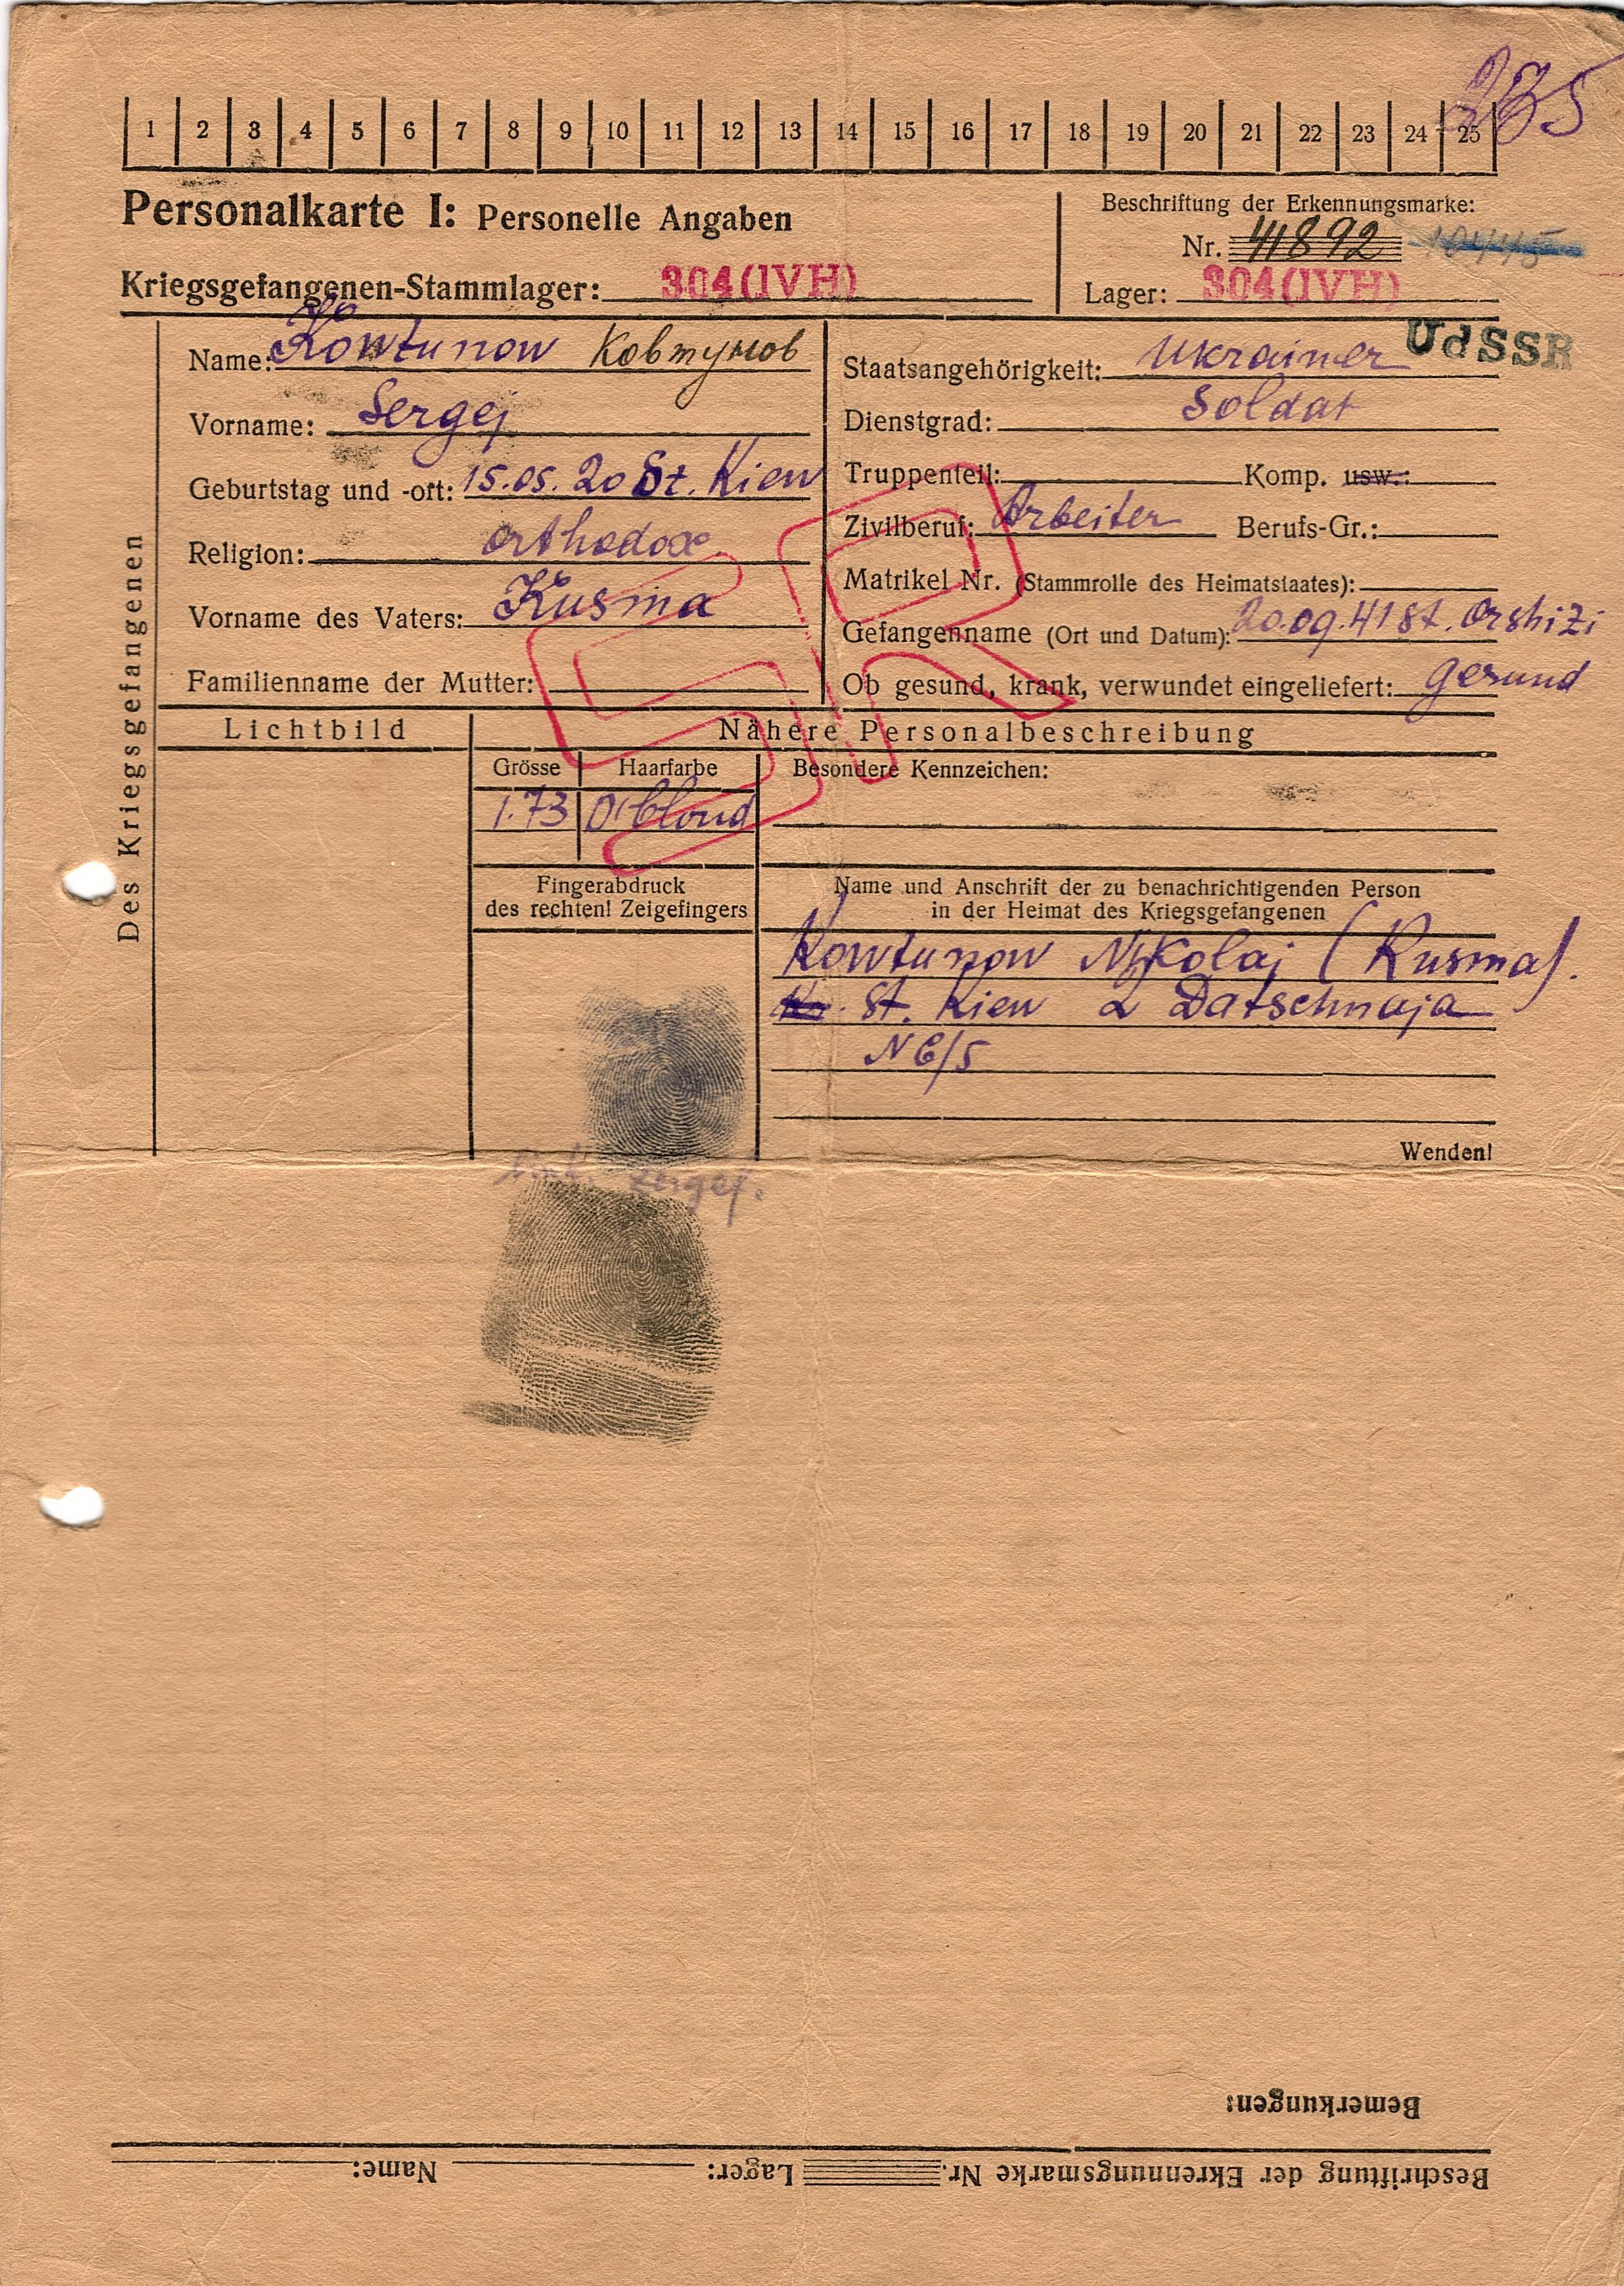 235
1 2 3 4 5 6 7 8 9 10 11 12 13 14 15 16 17 18 19 20 21 22 23 24 25
Personalkarte I: Personelle Angaben
Beschriftung der Erkennungsmarke:
Nr. 41892
Kriegsgefangenen-Stammlager: 304(IVH)
Lager: 304(IVH)
UdSSR
Des Kriegsgefangenen
Name: Kowtunow Ковтунов
Vorname: Sergej
Geburtstag und -ort: 15.05.20 St. Kiew
Religion: orthodox
Vorname des Vaters: Kusma
Familienname der Mutter:
Staatsangehörigkeit: Ukrainer
Dienstgrad: Soldat
Truppenteil: Komp. usw.:
Zivilberuf: Arbeiter Berufs-Gr.:
Matrikel Nr. (Stammrolle des Heimatstaates):
Gefangenname (Ort und Datum): 20.09.41 St. Orshizi
Ob gesund, krank, verwundet eingeliefert: gesund
SR
Lichtbild
Nähere Personalbeschreibung
Grösse Haarfarbe Besondere Kennzeichen:
1.73 D'blond
Fingerabdruck
des rechten! Zeigefingers
Name und Anschrift der zu benachrichtigenden Person
in der Heimat des Kriegsgefangenen
Kowtunow Nikolaj (Kusma).
St. Kiew 2 Datschnaja
N 6/5
Wenden!
link. Zeigef.
Bemerkungen:
Beschriftung der Ekrennungsmarke Nr. Lager: Name: